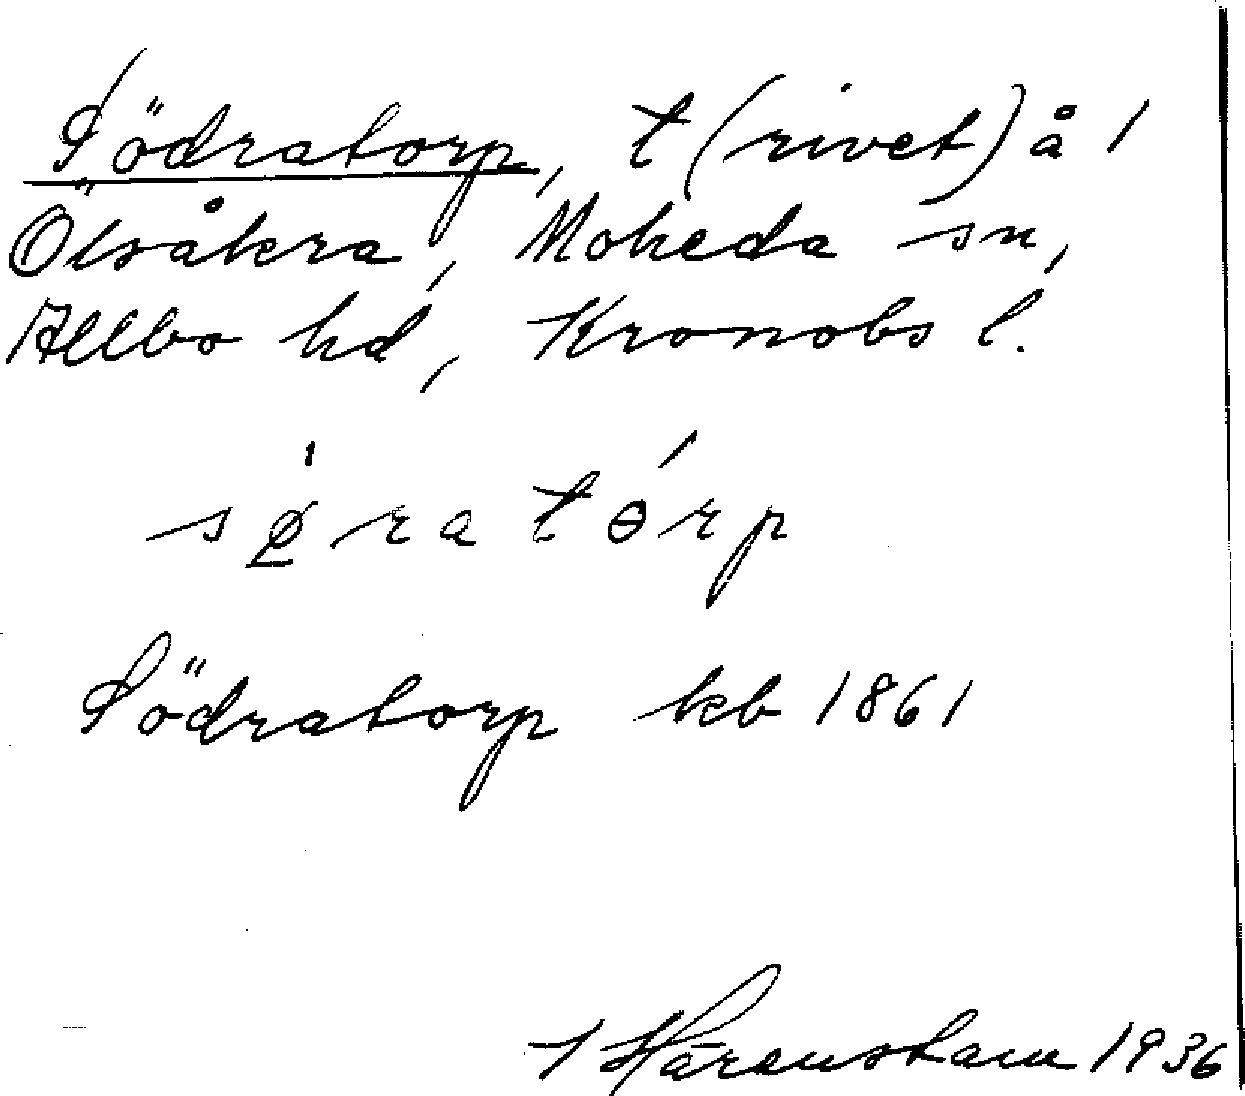 Södratorp, t (rivet) å 1
Ölsåkra, Moheda sn,
Allbo hd, Kronobs l.
sø̠ratɵrp
Södratorp kb 1861
Härenstam 1936